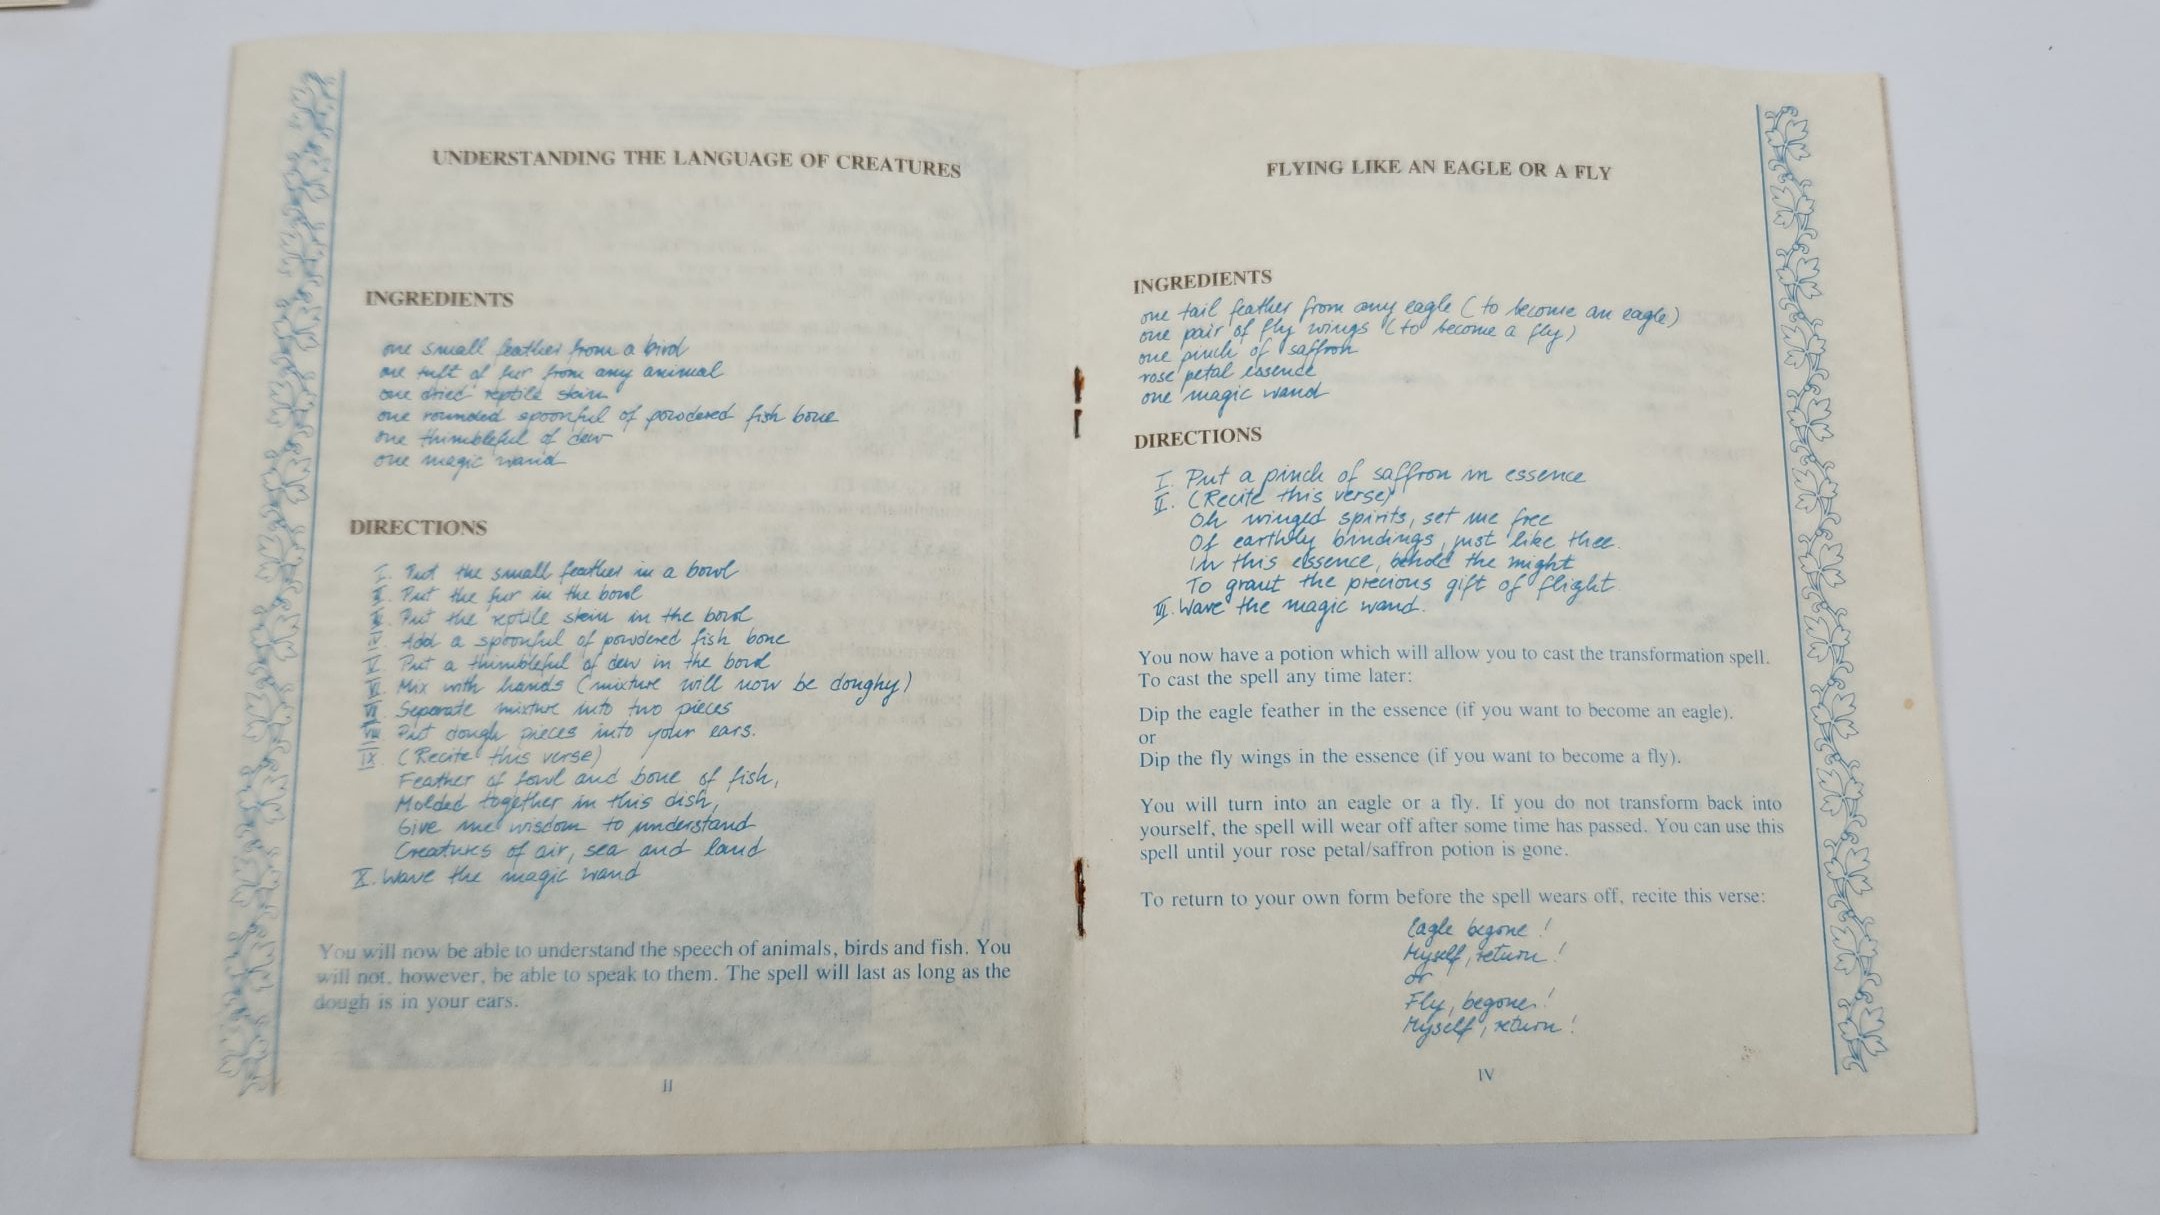 UNDERSTANDING THE LANGUAGE OF CREATURES
INGREDIENTS
one small feather from a bird
one tuft of fur from any animal
one dried reptile skin
one rounded spoonful of powdered fish bone
one thimbleful of dew
one magic wand
DIRECTIONS
I. Put the small feather in a bowl
II. Put the fur in the bowl
III. Put the reptile skin in the bowl
IV. Add a spoonful of powdered fish bone
V. Put a thimbleful of dew in the bowl
VI. Mix with hands (mixture will now be doughy)
VII. Separate mixture into two pieces
VIII. Put dough pieces into your ears.
IX. (Recite this verse)
Feather of fowl and bone of fish,
Molded together in this dish,
Give me wisdom to understand
Creatures of air, sea and land
X. Wave the magic wand
You will now be able to understand the speech of animals, birds and fish. You
will not, however, be able to speak to them. The spell will last as long as the
dough is in your ears.
II
FLYING LIKE AN EAGLE OR A FLY
INGREDIENTS
one tail feather from any eagle (to become an eagle)
one pair of fly wings (to become a fly)
one pinch of saffron
rose petal essence
one magic wand
DIRECTIONS
I. Put a pinch of saffron in essence
II. (Recite this verse)
Oh winged spirits, set me free
Of earthly bindings, just like thee.
In this essence, behold the might
To grant the precious gift of flight.
III. Wave the magic wand.
You now have a potion which will allow you to cast the transformation spell.
To cast the spell any time later:
Dip the eagle feather in the essence (if you want to become an eagle).
or
Dip the fly wings in the essence (if you want to become a fly).
You will turn into an eagle or a fly. If you do not transform back into
yourself, the spell will wear off after some time has passed. You can use this
spell until your rose petal/saffron potion is gone.
To return to your own form before the spell wears off, recite this verse:
Eagle begone!
Myself, return!
or
Fly, begone!
Myself, return!
IV